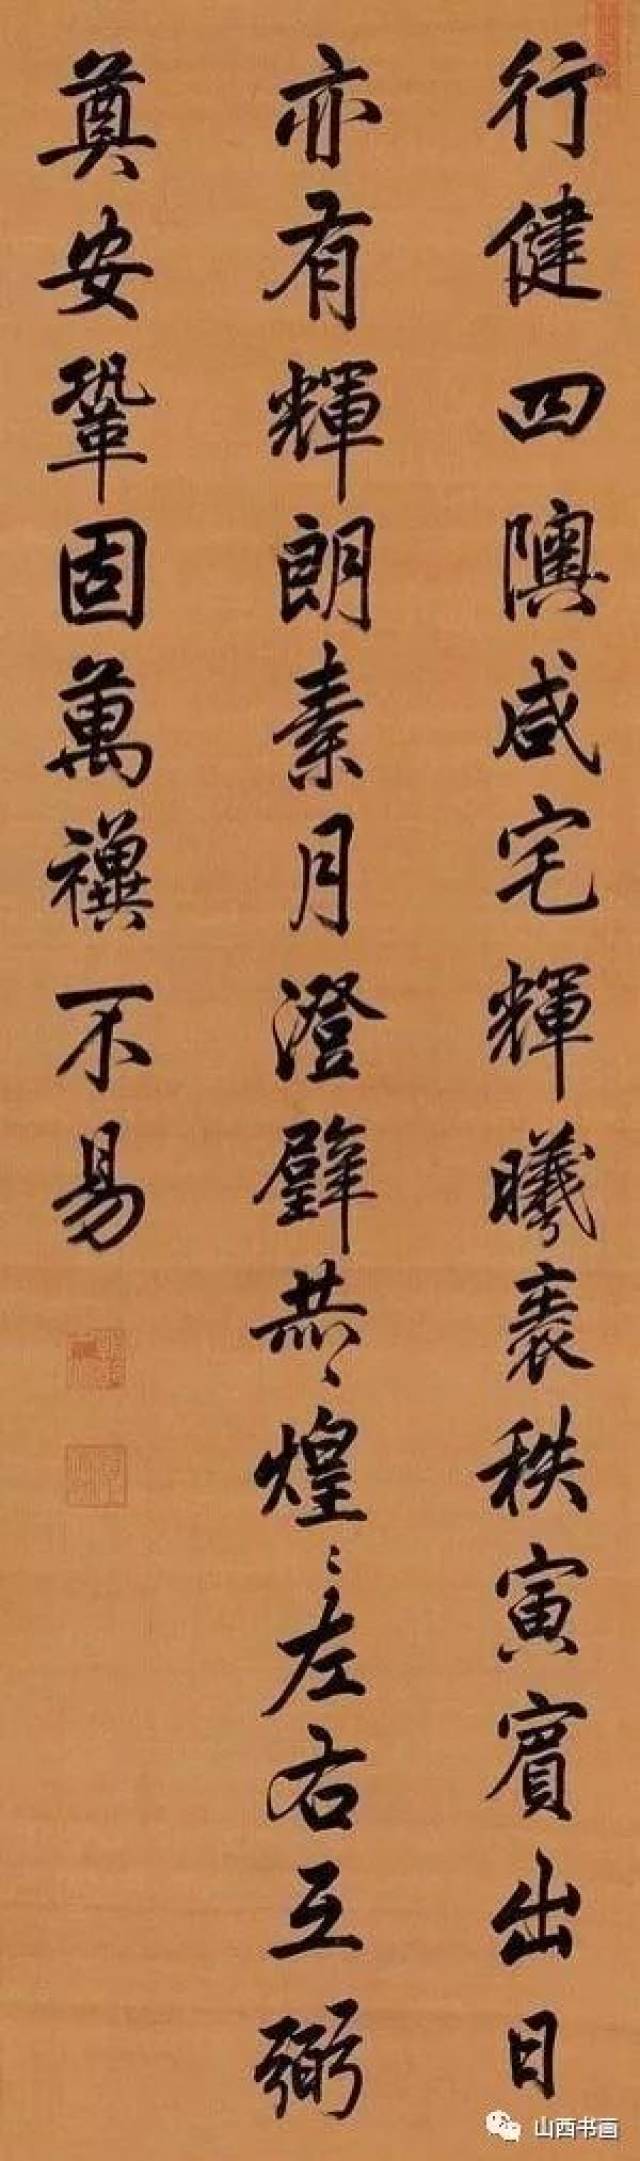 行健四隩咸宅輝曦裹秩寅賓出日
亦有輝朗素月澄璧共〻煌〻左右互弼
奠安鞏固萬禩不易
山西书画